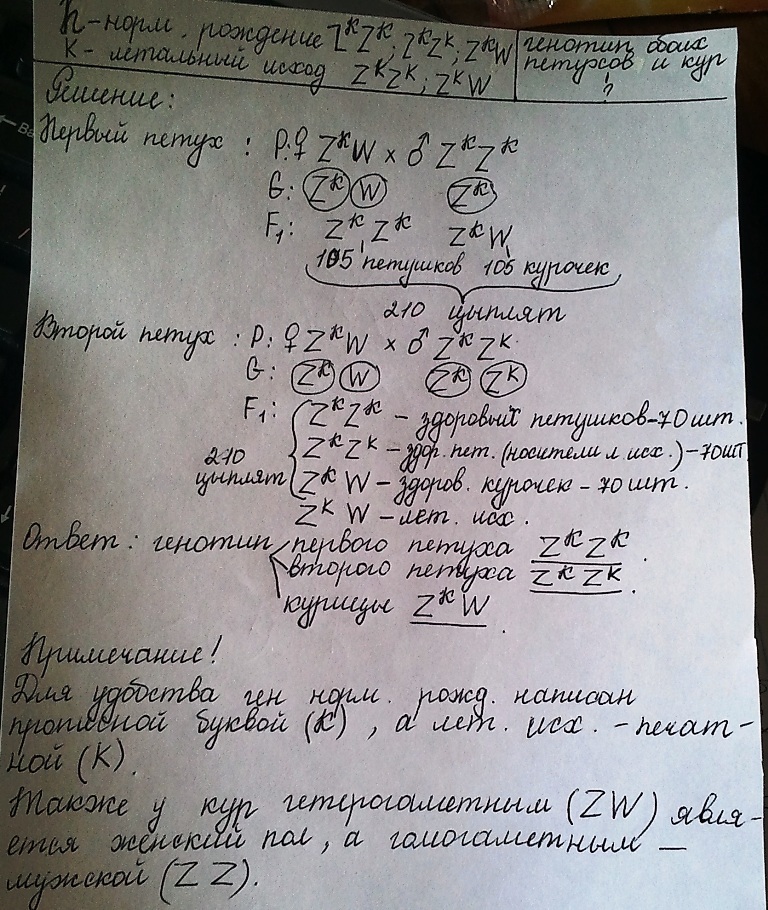 К-норм. рождение ZᴷZᴷ; ZᴷZᵏ; ZᴷW
к- летальный исход ZᵏZᵏ; ZᵏW
генотип обоих
петухов и кур
?
Решение:
Первый петух : P:♀ ZᴷW × ♂ ZᴷZᴷ
G: Zᴷ W Zᴷ
F₁: ZᴷZᴷ ZᴷW
105 петушков 105 курочек,
210 цыплят
Второй петух : P: ♀ ZᴷW × ♂ ZᴷZᵏ
G: Zᴷ W Zᴷ Zᵏ
F₁: ZᴷZᴷ – здоровых петушков-70шт.
ZᴷZᵏ – здор. пет. (носители л. исх.)-70шт
210
цыплят
ZᴷW – здоров. курочек - 70 шт.
ZᵏW – лет. исх.
Ответ: генотип первого петуха ZᴷZᴷ.
второго петуха ZᴷZᵏ.
курицы ZᴷW.
Примечание!
Для удобства ген норм. рожд. написан
прописной буквой (К), а лет. исх. - печат-
ной (К).
Также у кур гетерогаметным (ZW) явля-
ется женский пол, а гомогаметным —
мужской (ZZ).